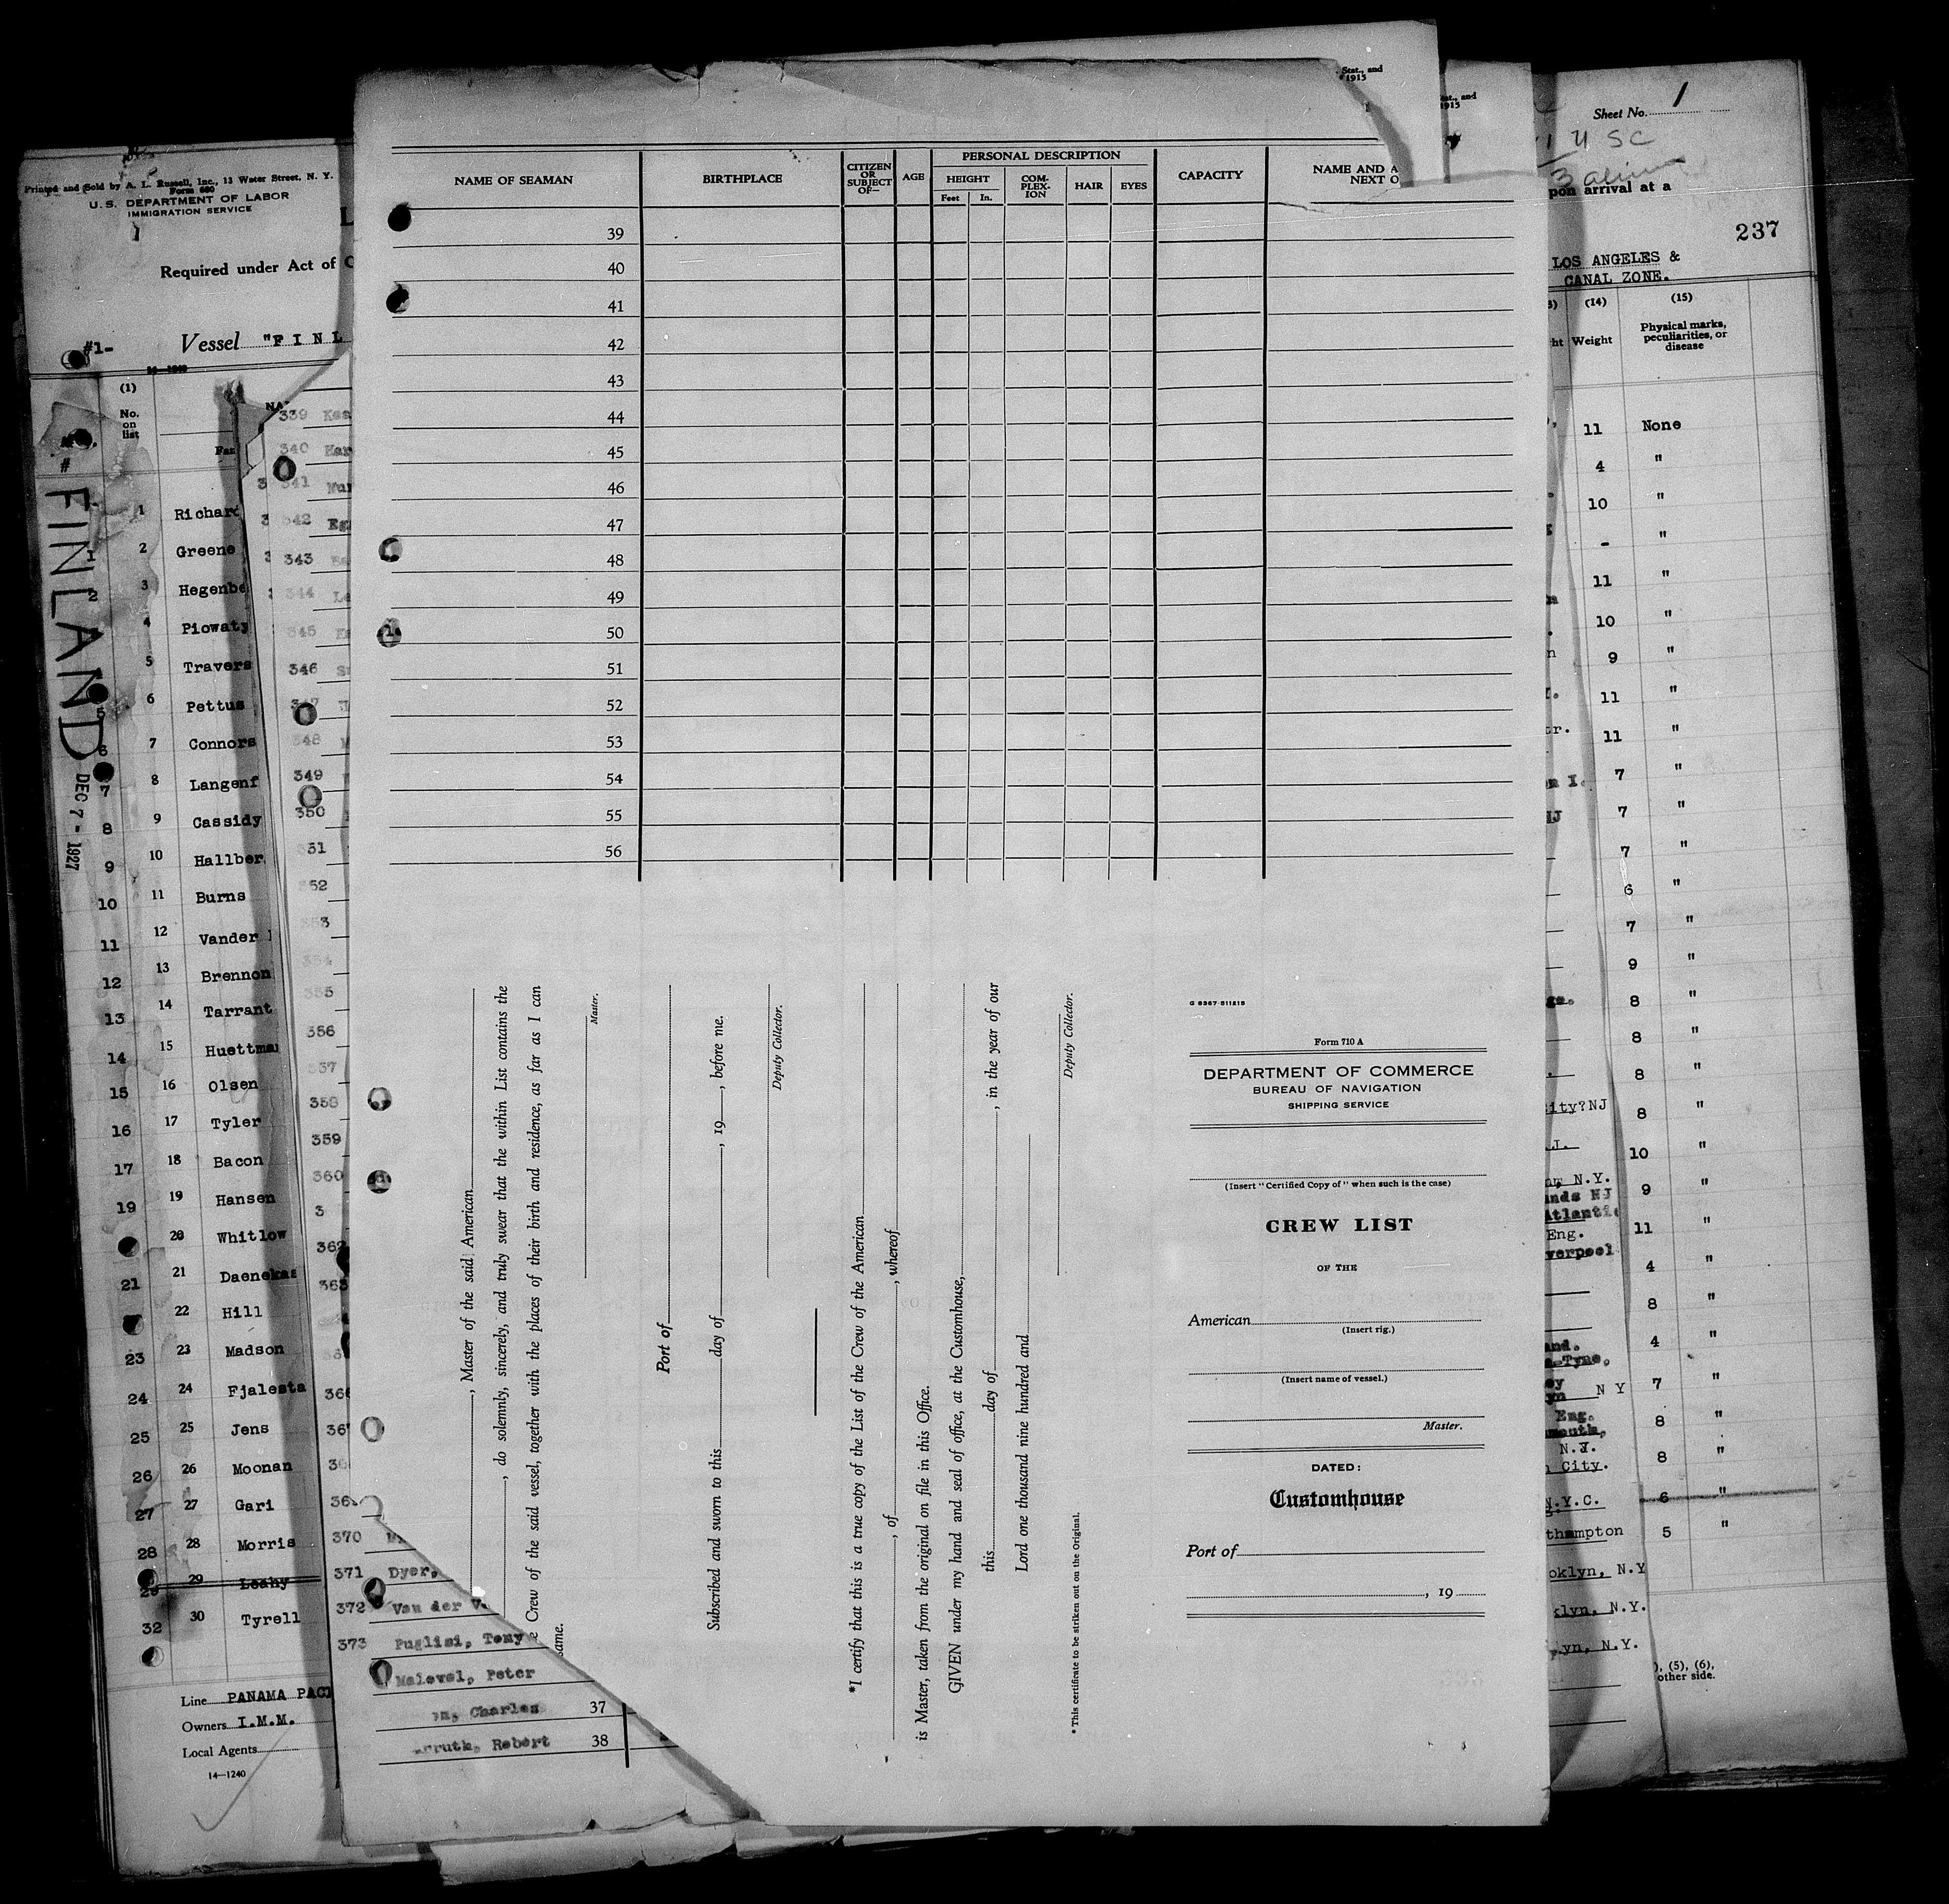 Printed and Sold by A. L. Russell, Inc., 13 Water Street, N. Y.
Form 680
U. S. DEPARTMENT OF LABOR
IMMIGRATION SERVICE
Required under Act of
#1-
Vessel "F I N L
(1)
No.
on
list
FINLAND
DEC 7 - 1927
1 Richard
2 Greene
3 Hegenbe
4 Piowaty
5 Travers
6 Pettus
7 Connors
8 Langenf
9 Cassidy
10 Hallber
11 Burns
12 Vander
13 Brennon
14 Tarrant
15 Huettma
16 Olsen
17 Tyler
18 Bacon
19 Hansen
20 Whitlow
21 Daenekas
22 Hill
23 Madson
24 Fjalesta
25 Jens
26 Moonan
27 Gari
28 Morris
29 Leahy
30 Tyrell
Line PANAMA PACI
Owners I.M.M.
Local Agents
14—1240
339
340
341
342
343
344
345
346
348
349
350
356
357
358
359
360
370
371 Dyer,
372 Van der V
373 Puglisi, Tony
Malevel, Peter
Charles 37
Robert 38
Stat., and
1915
NAME OF SEAMAN
BIRTHPLACE
CITIZEN
OR
SUBJECT
OF—
AGE
PERSONAL DESCRIPTION
HEIGHT
Feet In.
COM-
PLEX-
ION
HAIR
EYES
CAPACITY
NAME AND A
NEXT O
39
40
41
42
43
44
45
46
47
48
49
50
51
52
53
54
55
56
, Master of the said American
, do solemnly, sincerely, and truly swear that the within List contains the
Crew of the said vessel, together with the places of their birth and residence, as far as I can
same.
Master.
Port of
Subscribed and sworn to this day of , 19 , before me.
Deputy Collector.
*I certify that this is a true copy of the List of the Crew of the American
, of , whereof
is Master, taken from the original on file in this Office.
GIVEN under my hand and seal of office, at the Customhouse,
this day of , in the year of our
Lord one thousand nine hundred and
Deputy Collector.
* This certificate to be striken out on the Original.
Form 710 A
DEPARTMENT OF COMMERCE
BUREAU OF NAVIGATION
SHIPPING SERVICE
(Insert "Certified Copy of" when such is the case)
CREW LIST
OF THE
American
(Insert rig.)
(Insert name of vessel.)
Master.
DATED:
Customhouse
Port of
, 19
Sheet No. 1
4 SC
3 alien
pon arrival at a
237
LOS ANGELES &
CANAL ZONE.
(14) (15)
Weight
Physical marks,
peculiarities, or
disease
11 None
4 "
10 "
- "
11 "
10 "
9 "
11 "
11 "
7 "
7 "
7 "
6 "
7 "
9 "
8 "
8 "
8 "
ity?NJ 8 "
10 "
N.Y. 9 "
nds NJ
Atlantic 11 "
Eng.
verpool 4 "
8 "
and. 4 "
Tyne.
N Y 7 "
Eng. 8 "
mouth,
N.J. 8 "
City.
N.Y.C. 6 "
thampton 5 "
oklyn, N.Y
klyn, N.Y.
yn, N.Y.
), (5), (6),
other side.